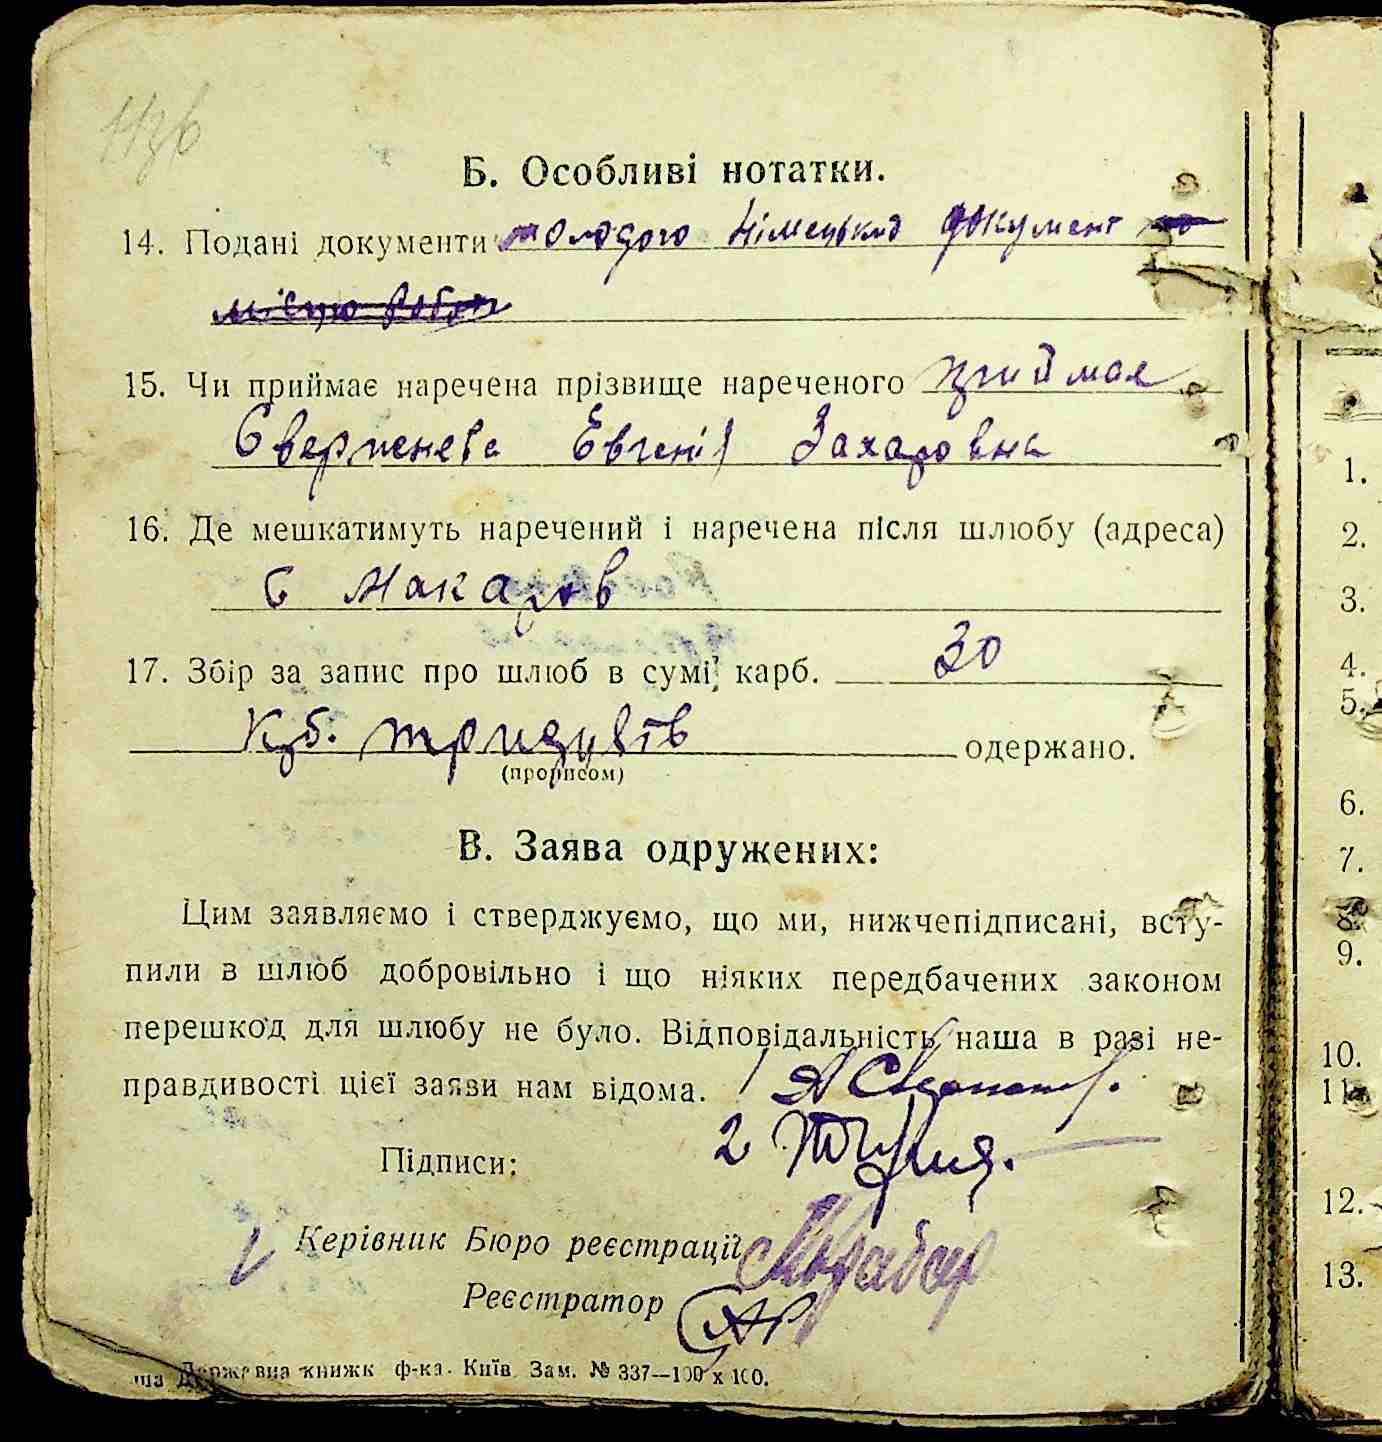 Б. Особливі нотатки.
14. Подані документи молодого німецький документ по
місцю роботи
15. Чи приймає наречена прізвище нареченого приймає
Євгенія Захаровна
16. Де мешкатимуть наречений і наречена після шлюбу (адреса)
с Макарів
17. Збір за запис про шлюб в сумі, карб. 30
Крб. тридцять одержано.
(прописом)
В. Заява одружених:
Цим заявляємо і стверджуємо, що ми, нижчепідписані, всту-
пили в шлюб добровільно і що ніяких передбачених законом
перешкод для шлюбу не було. Відповідальність наша в разі не-
правдивості цієї заяви нам відома. 1
2
Підписи:
Керівник Бюро реєстрації
Реєстратор
ша Державна книжк ф-ка. Київ Зам. № 337—100 х 100.
1.
2.
3.
4.
5.
6.
7.
8.
9.
10.
11.
12.
13.